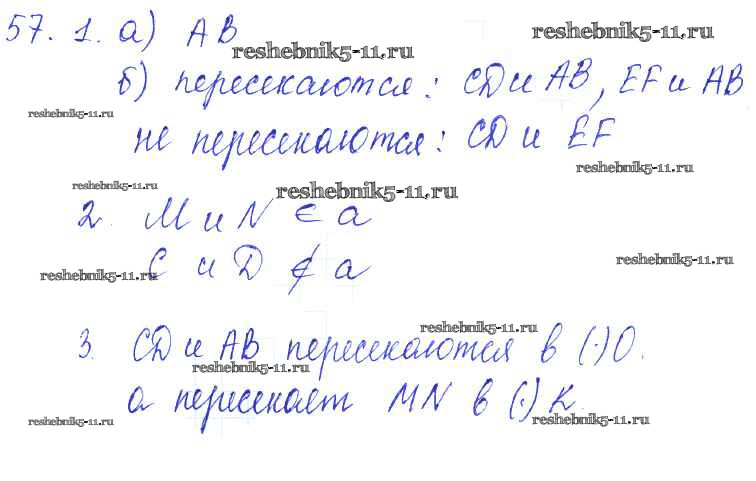 57. 1. а) АВ
reshebnik5-11.ru
reshebnik5-11.ru
б) пересекаются: CD и AB, EF и AB
reshebnik5-11.ru
не пересекаются: CD и EF
reshebnik5-11.ru
reshebnik5-11.ru
reshebnik5-11.ru
2. M и N ∈ a
C и D ∉ a
reshebnik5-11.ru
reshebnik5-11.ru
reshebnik5-11.ru
3. CD и AB пересекаются в (·) O.
reshebnik5-11.ru
а пересекает MN в (·) K.
reshebnik5-11.ru
reshebnik5-11.ru